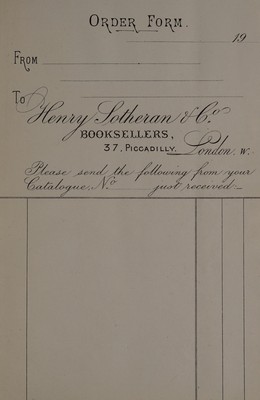 ORDER FORM.
19
FROM
To
Henry Sotheran & Co.
BOOKSELLERS,
37, PICCADILLY, London, W.
Please send the following from your
Catalogue, No. just received—